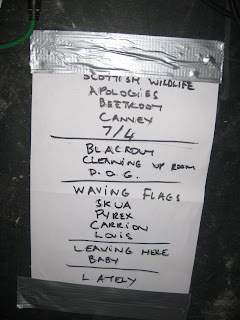 SCOTTISH WILDLIFE
APOLOGIES
BEETROOM
CANNEY
7/4
BLACKOUT
CLEANING UP ROOM
D.O.G.
WAVING FLAGS
SKUA
PYREX
CARRION
LOUIS
LEAVING HERE
BABY
LATELY